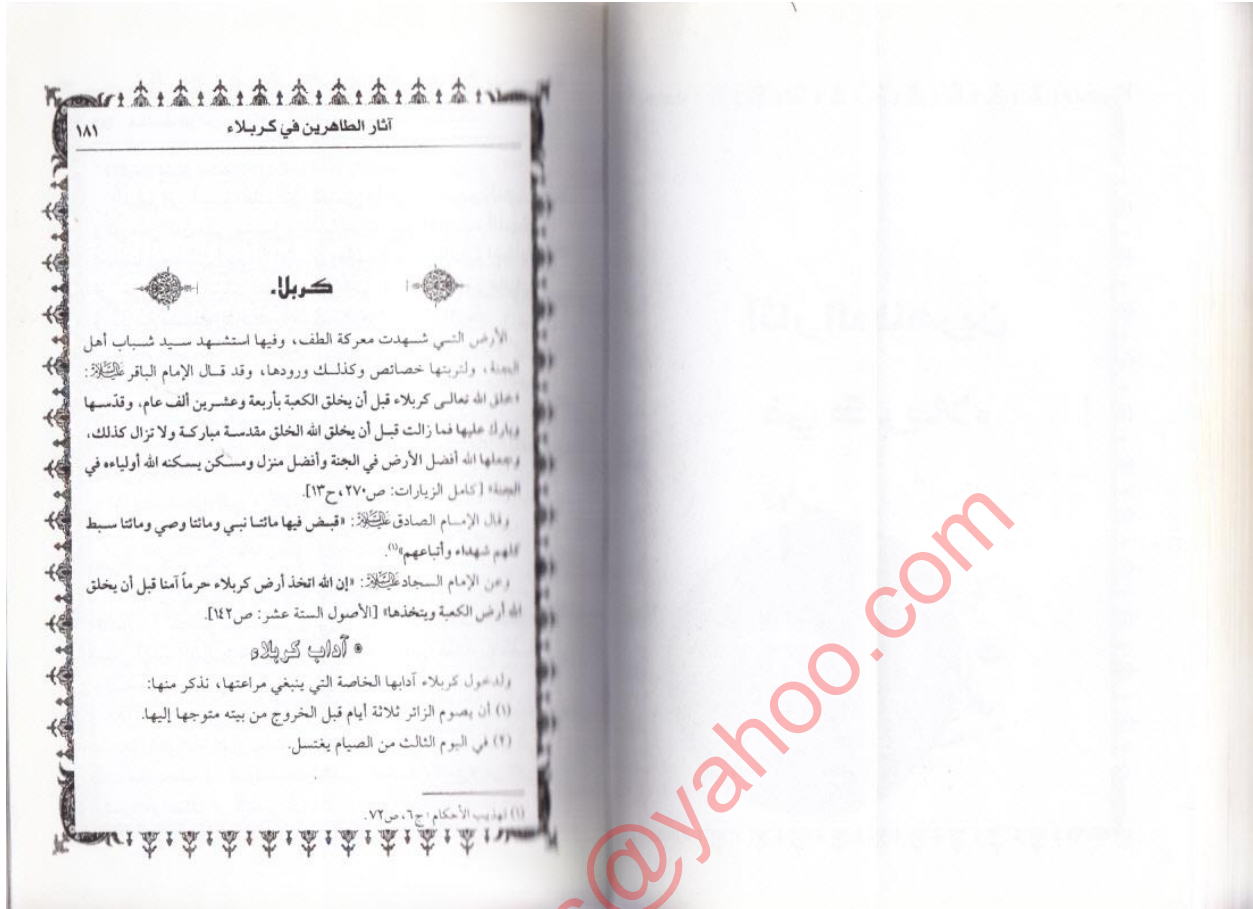 آثار الطاهرين في كربلاء
١٨١
كربلا.
الأرض التي شهدت معركة الطف، وفيها استشهد سيد شباب أهل
الجنة، ولتربتها خصائص وكذلك ورودها، وقد قال الإمام الباقر عليه السلام:
«خلق الله تعالى كربلاء قبل أن يخلق الكعبة بأربعة وعشرين ألف عام، وقدّسها
وبارك عليها فما زالت قبل أن يخلق الله الخلق مقدسة مباركة ولا تزال كذلك،
وجعلها الله أفضل الأرض في الجنة وأفضل منزل ومسكن يسكنه الله أولياءه في
الجنة» [كامل الزيارات: ص٢٧٠، ح١٣].
وقال الإمام الصادق عليه السلام: «قبض فيها مائتا نبي ومائتا وصي ومائتا سبط
كلهم شهداء وأتباعهم»(١).
وعن الإمام السجاد عليه السلام: «إن الله اتخذ أرض كربلاء حرماً آمنا قبل أن يخلق
الله أرض الكعبة ويتخذها» [الأصول الستة عشر: ص١٤٢].
* آداب كربلاء
ولدخول كربلاء آدابها الخاصة التي ينبغي مراعتها، نذكر منها:
(١) أن يصوم الزائر ثلاثة أيام قبل الخروج من بيته متوجها إليها.
(٢) في اليوم الثالث من الصيام يغتسل.
(١) تهذيب الأحكام: ج٦، ص٧٢.
s@yahoo.com